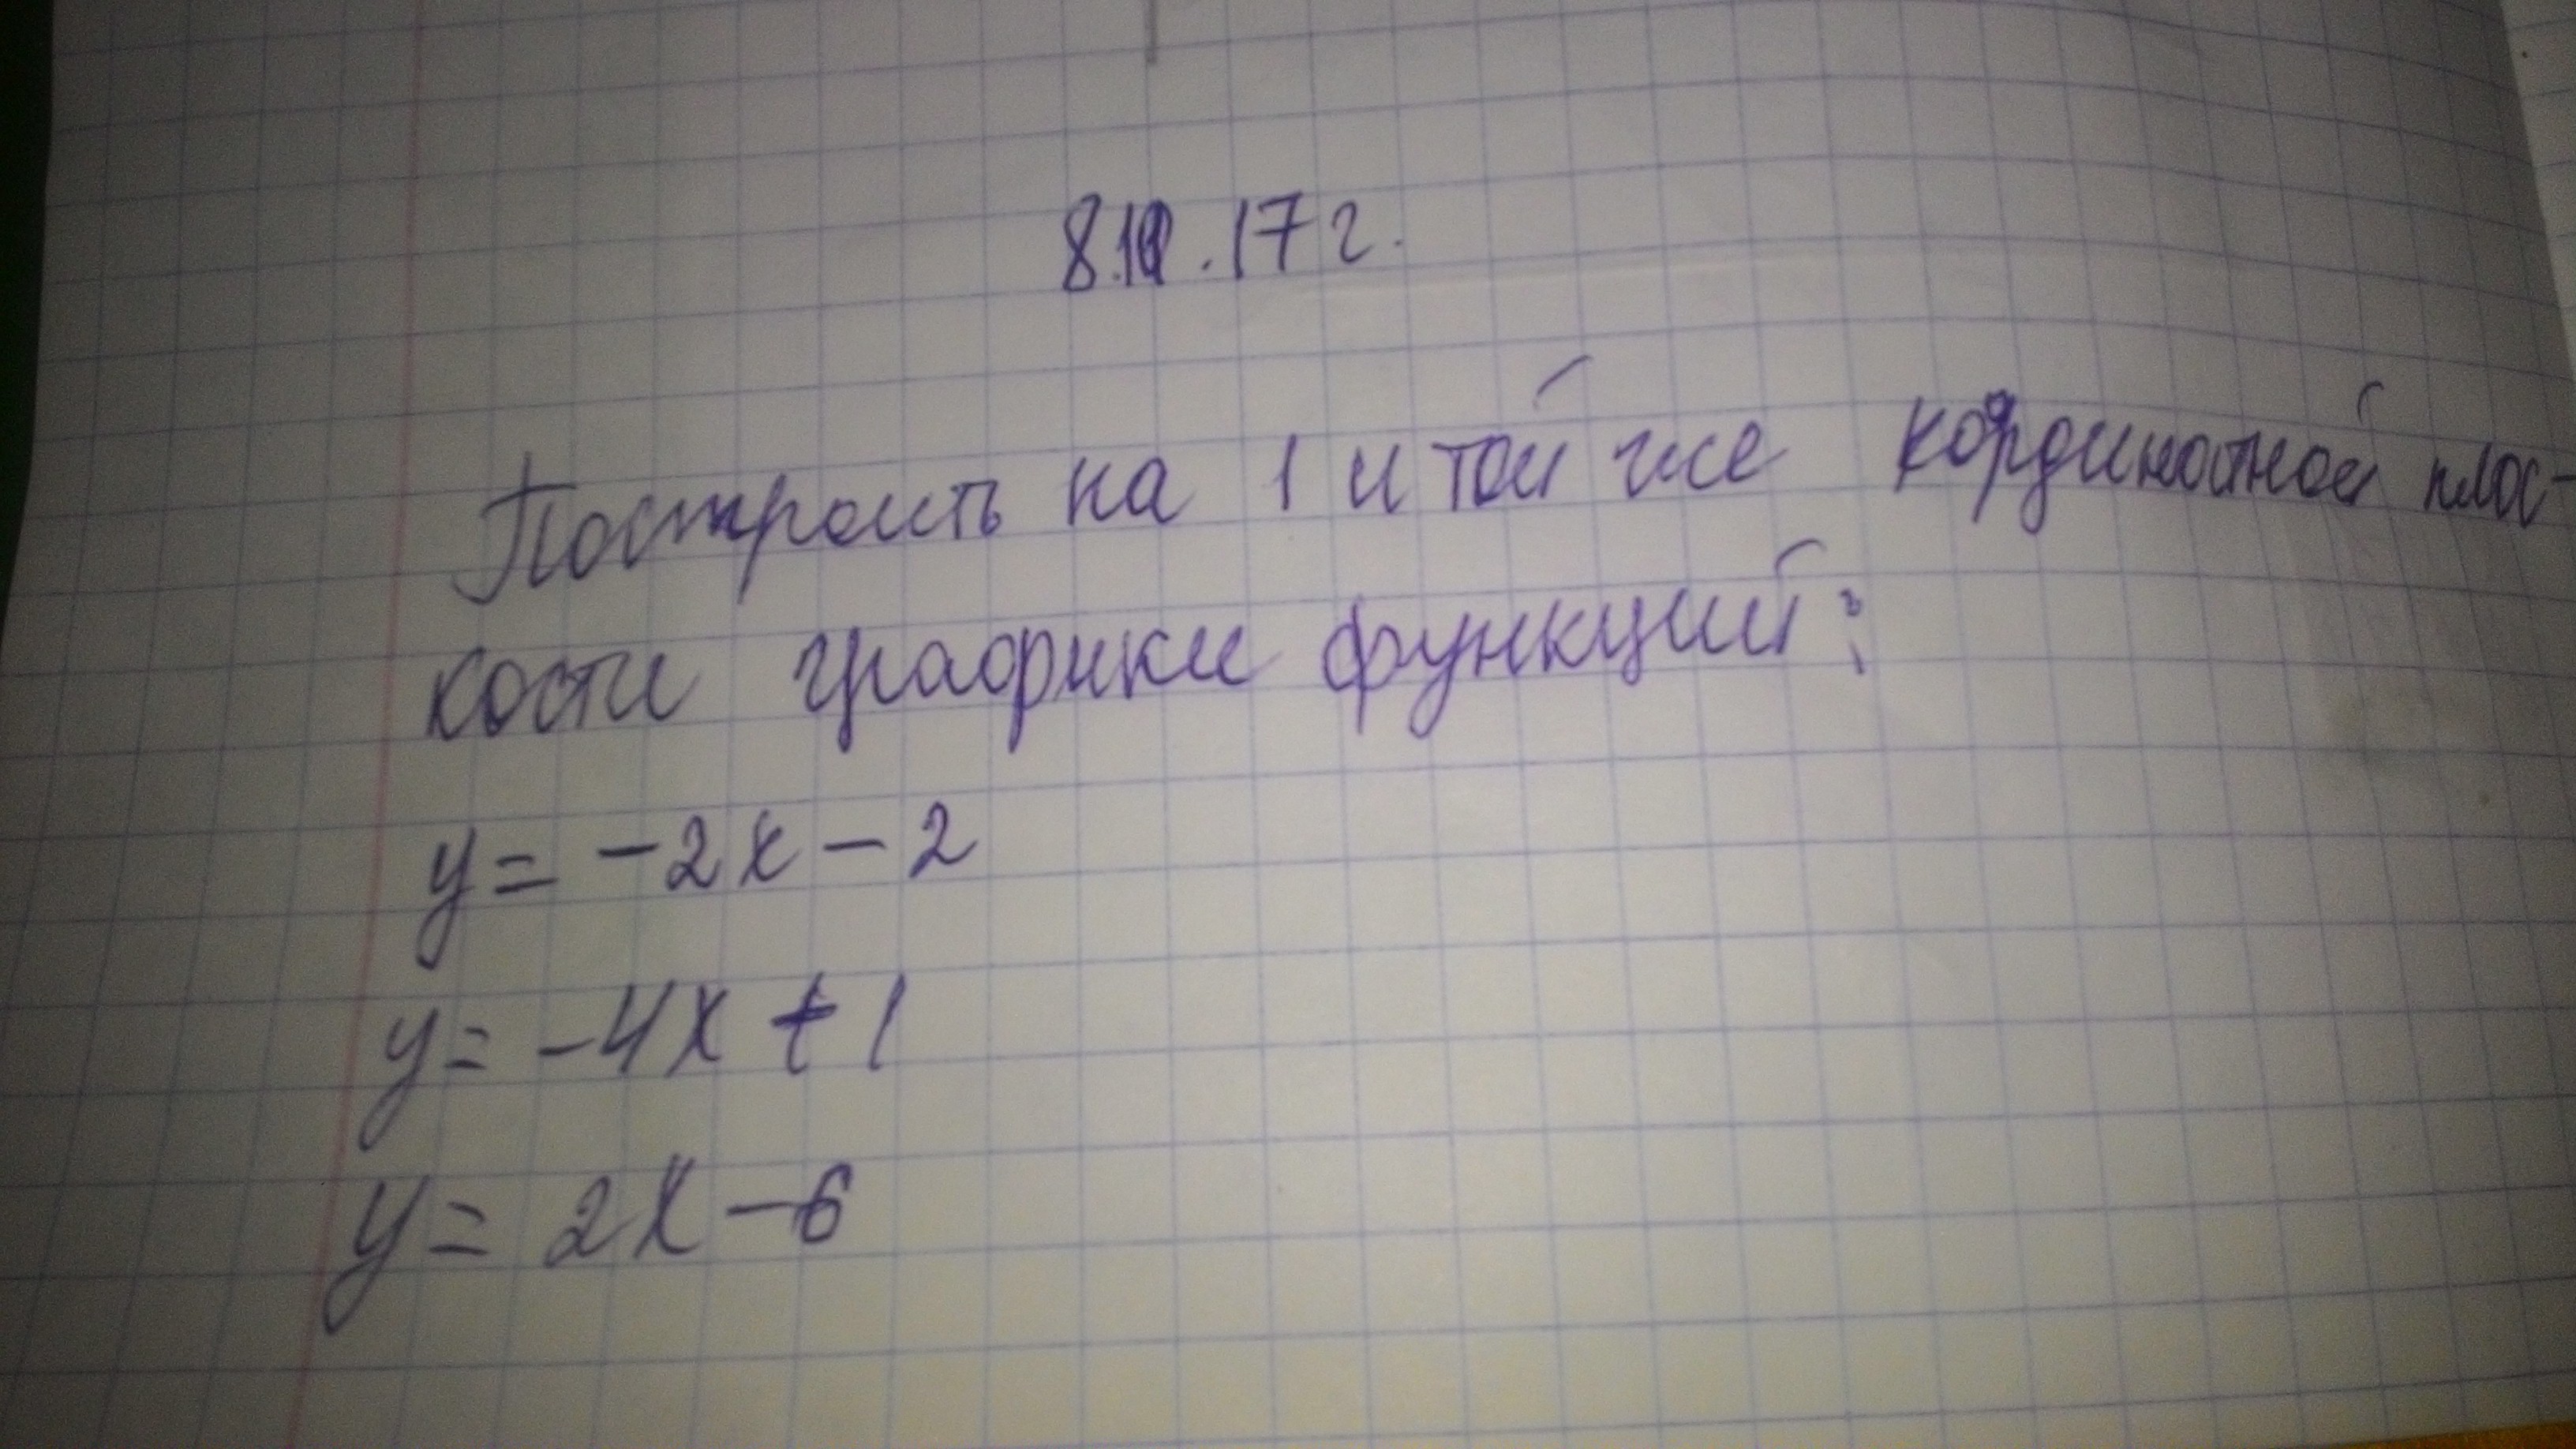 8.11.17 г.
Построить на 1 и той же кординатной плос-
кости графики функций:
y = -2x - 2
y = -4x + 1
y = 2x - 6